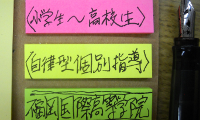 〈小学生〜高校生〉
〈自律型個別指導〉
福岡国際高等学院